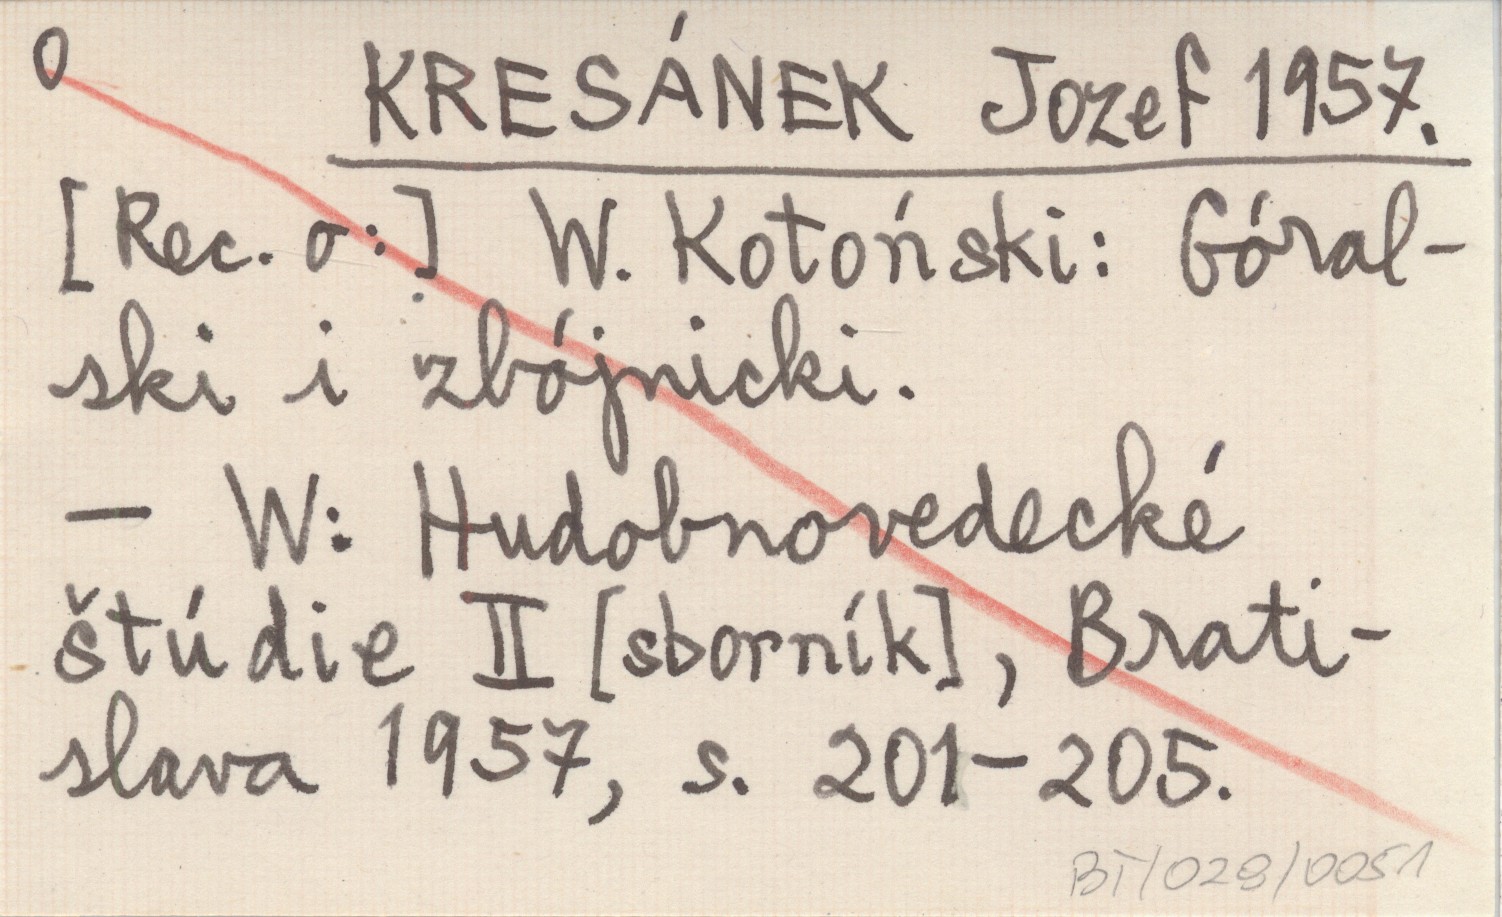 O KRESÁNEK Jozef 1957.
[Rec. o:] W. Kotoński: Góral-
ski i zbójnicki.
— W: Hudobnovedecké
štúdie II [sborník], Brati-
slava 1957, s. 201-205.
BT/028/0051